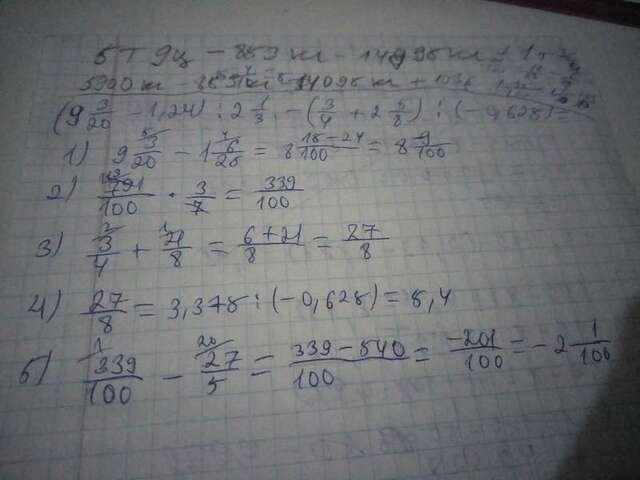 5т 9ц - 859 кг - 14095 кг + 1т
5390 кг 14095 кг + 1036
(9 3/20 - 1,24) : 2 1/3 - (3/4 + 2 5/8) : (-0,625) =
1) 9 3/20 - 1 6/25 = 8 115-24/100 = 8 9/100
2) 791/100 · 3/7 = 339/100
3) 3/4 + 21/8 = 6+21/8 = 27/8
4) 27/8 = 3,375 : (-0,625) = 5,4
5) 339/100 - 27/5 = 339-540/100 = -201/100 = -2 1/100